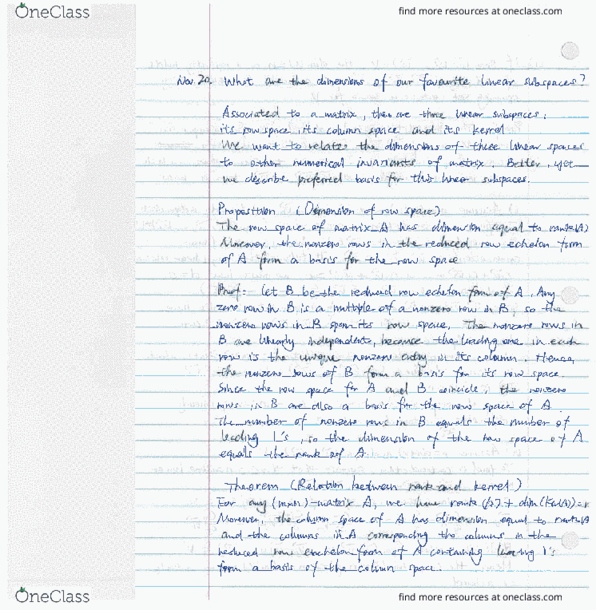 OneClass
find more resources at oneclass.com
Nov 20. What are the dimensions of our favourite linear subspaces?
Associated to a matrix, there are three linear subspaces:
its row space, its column space and its kernel
We want to relate the dimensions of these linear spaces
to other numerical invariants of matrix. Better, yet
we describe preferred basis for this linear subspaces.
Proposition (Dimension of row space)
The row space of matrix A has dimension equal to rank(A)
Moreover, the nonzero rows in the reduced row echelon form
of A form a basis for the row space
Proof: Let B be the reduced row echelon form of A. Any
zero row in B is a multiple of a nonzero row in B, so the
nonzero rows in B span its row space. The nonzero rows in
B are linearly independents, because the leading one in each
row is the unique nonzero entry in its column. Hence,
the nonzero rows of B form a basis for its row space.
Since the row space for A and B coincide, the nonzero
rows in B are also a basis for the row space of A.
The number of nonzero rows in B equals the number of
leading 1's, so the dimension of the row space of A
equals the rank of A.
Theorem (Relation between rank and kernel)
For any (mxn)-matrix A, we have rank(A) + dim(Ker(A)) =
Moreover, the column space of A has dimension equal to rank(A)
and the columns in A corresponding the columns in the
reduced row echelon form of A containing leading 1's
form a basis of the column space.
OneClass
find more resources at oneclass.com